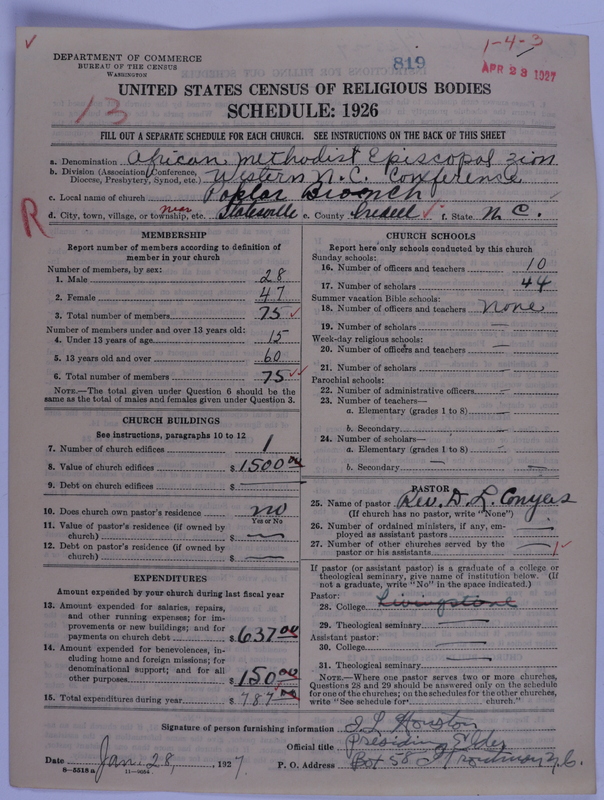 819
1-4-3
APR 23 1927
DEPARTMENT OF COMMERCE
BUREAU OF THE CENSUS
WASHINGTON
13
UNITED STATES CENSUS OF RELIGIOUS BODIES
SCHEDULE: 1926
FILL OUT A SEPARATE SCHEDULE FOR EACH CHURCH. SEE INSTRUCTIONS ON THE BACK OF THIS SHEET
a. Denomination African Methodist Episcopal Zion
b. Division (Association, Conference, Diocese, Presbytery, Synod, etc.) Western N.C. Conference
c. Local name of church Poplar Branch
R
d. City, town, village, or township, etc. near Statesville e. County Iredell f. State N. C.
MEMBERSHIP
Report number of members according to definition of
member in your church
Number of members, by sex:
1. Male 28
2. Female 47
3. Total number of members 75
Number of members under and over 13 years old:
4. Under 13 years of age 15
5. 13 years old and over 60
6. Total number of members 75
NOTE.—The total given under Question 6 should be
same as the total of males and females given under Question 3.
CHURCH BUILDINGS
See instructions, paragraphs 10 to 12
7. Number of church edifices 1
8. Value of church edifices $1500.00
9. Debt on church edifices $ —
10. Does church own pastor's residence no
Yes or No
11. Value of pastor's residence (if owned by
church) $ —
12. Debt on pastor's residence (if owned by
church) $ —
EXPENDITURES
Amount expended by your church during last fiscal year
13. Amount expended for salaries, repairs,
and other running expenses; for im-
provements or new buildings; and for
payments on church debt $637.00
14. Amount expended for benevolences, in-
cluding home and foreign missions; for
denominational support; and for all
other purposes $150.00
15. Total expenditures during year $787.00
CHURCH SCHOOLS
Report here only schools conducted by this church
Sunday schools:
16. Number of officers and teachers 10
17. Number of scholars 44
Summer vacation Bible schools:
18. Number of officers and teachers None
19. Number of scholars —
Week-day religious schools:
20. Number of officers and teachers —
21. Number of scholars —
Parochial schools:
22. Number of administrative officers —
23. Number of teachers—
a. Elementary (grades 1 to 8) —
b. Secondary —
24. Number of scholars—
a. Elementary (grades 1 to 8) —
b. Secondary —
PASTOR
25. Name of pastor Rev. D. L. Conyers
(If church has no pastor, write "None")
26. Number of ordained ministers, if any, em-
ployed as assistant pastors —
27. Number of other churches served by the
pastor or his assistants — 1
If pastor (or assistant pastor) is a graduate of a college or
theological seminary, give name of institution below. (If
not a graduate, write "No" in the space indicated.)
Pastor:
28. College Livingstone
29. Theological seminary —
Assistant pastor:
30. College —
31. Theological seminary —
NOTE.—Where one pastor serves two or more churches,
Questions 28 and 29 should be answered only on the schedule
for one of the churches; on the schedules for the other churches,
write "See schedule for church."
Signature of person furnishing information J. L. Houston
Official title Presiding Elder
Date Jan. 28, 1927. P. O. Address Box 58 Troutman N.C.
8-5518a 11-9054